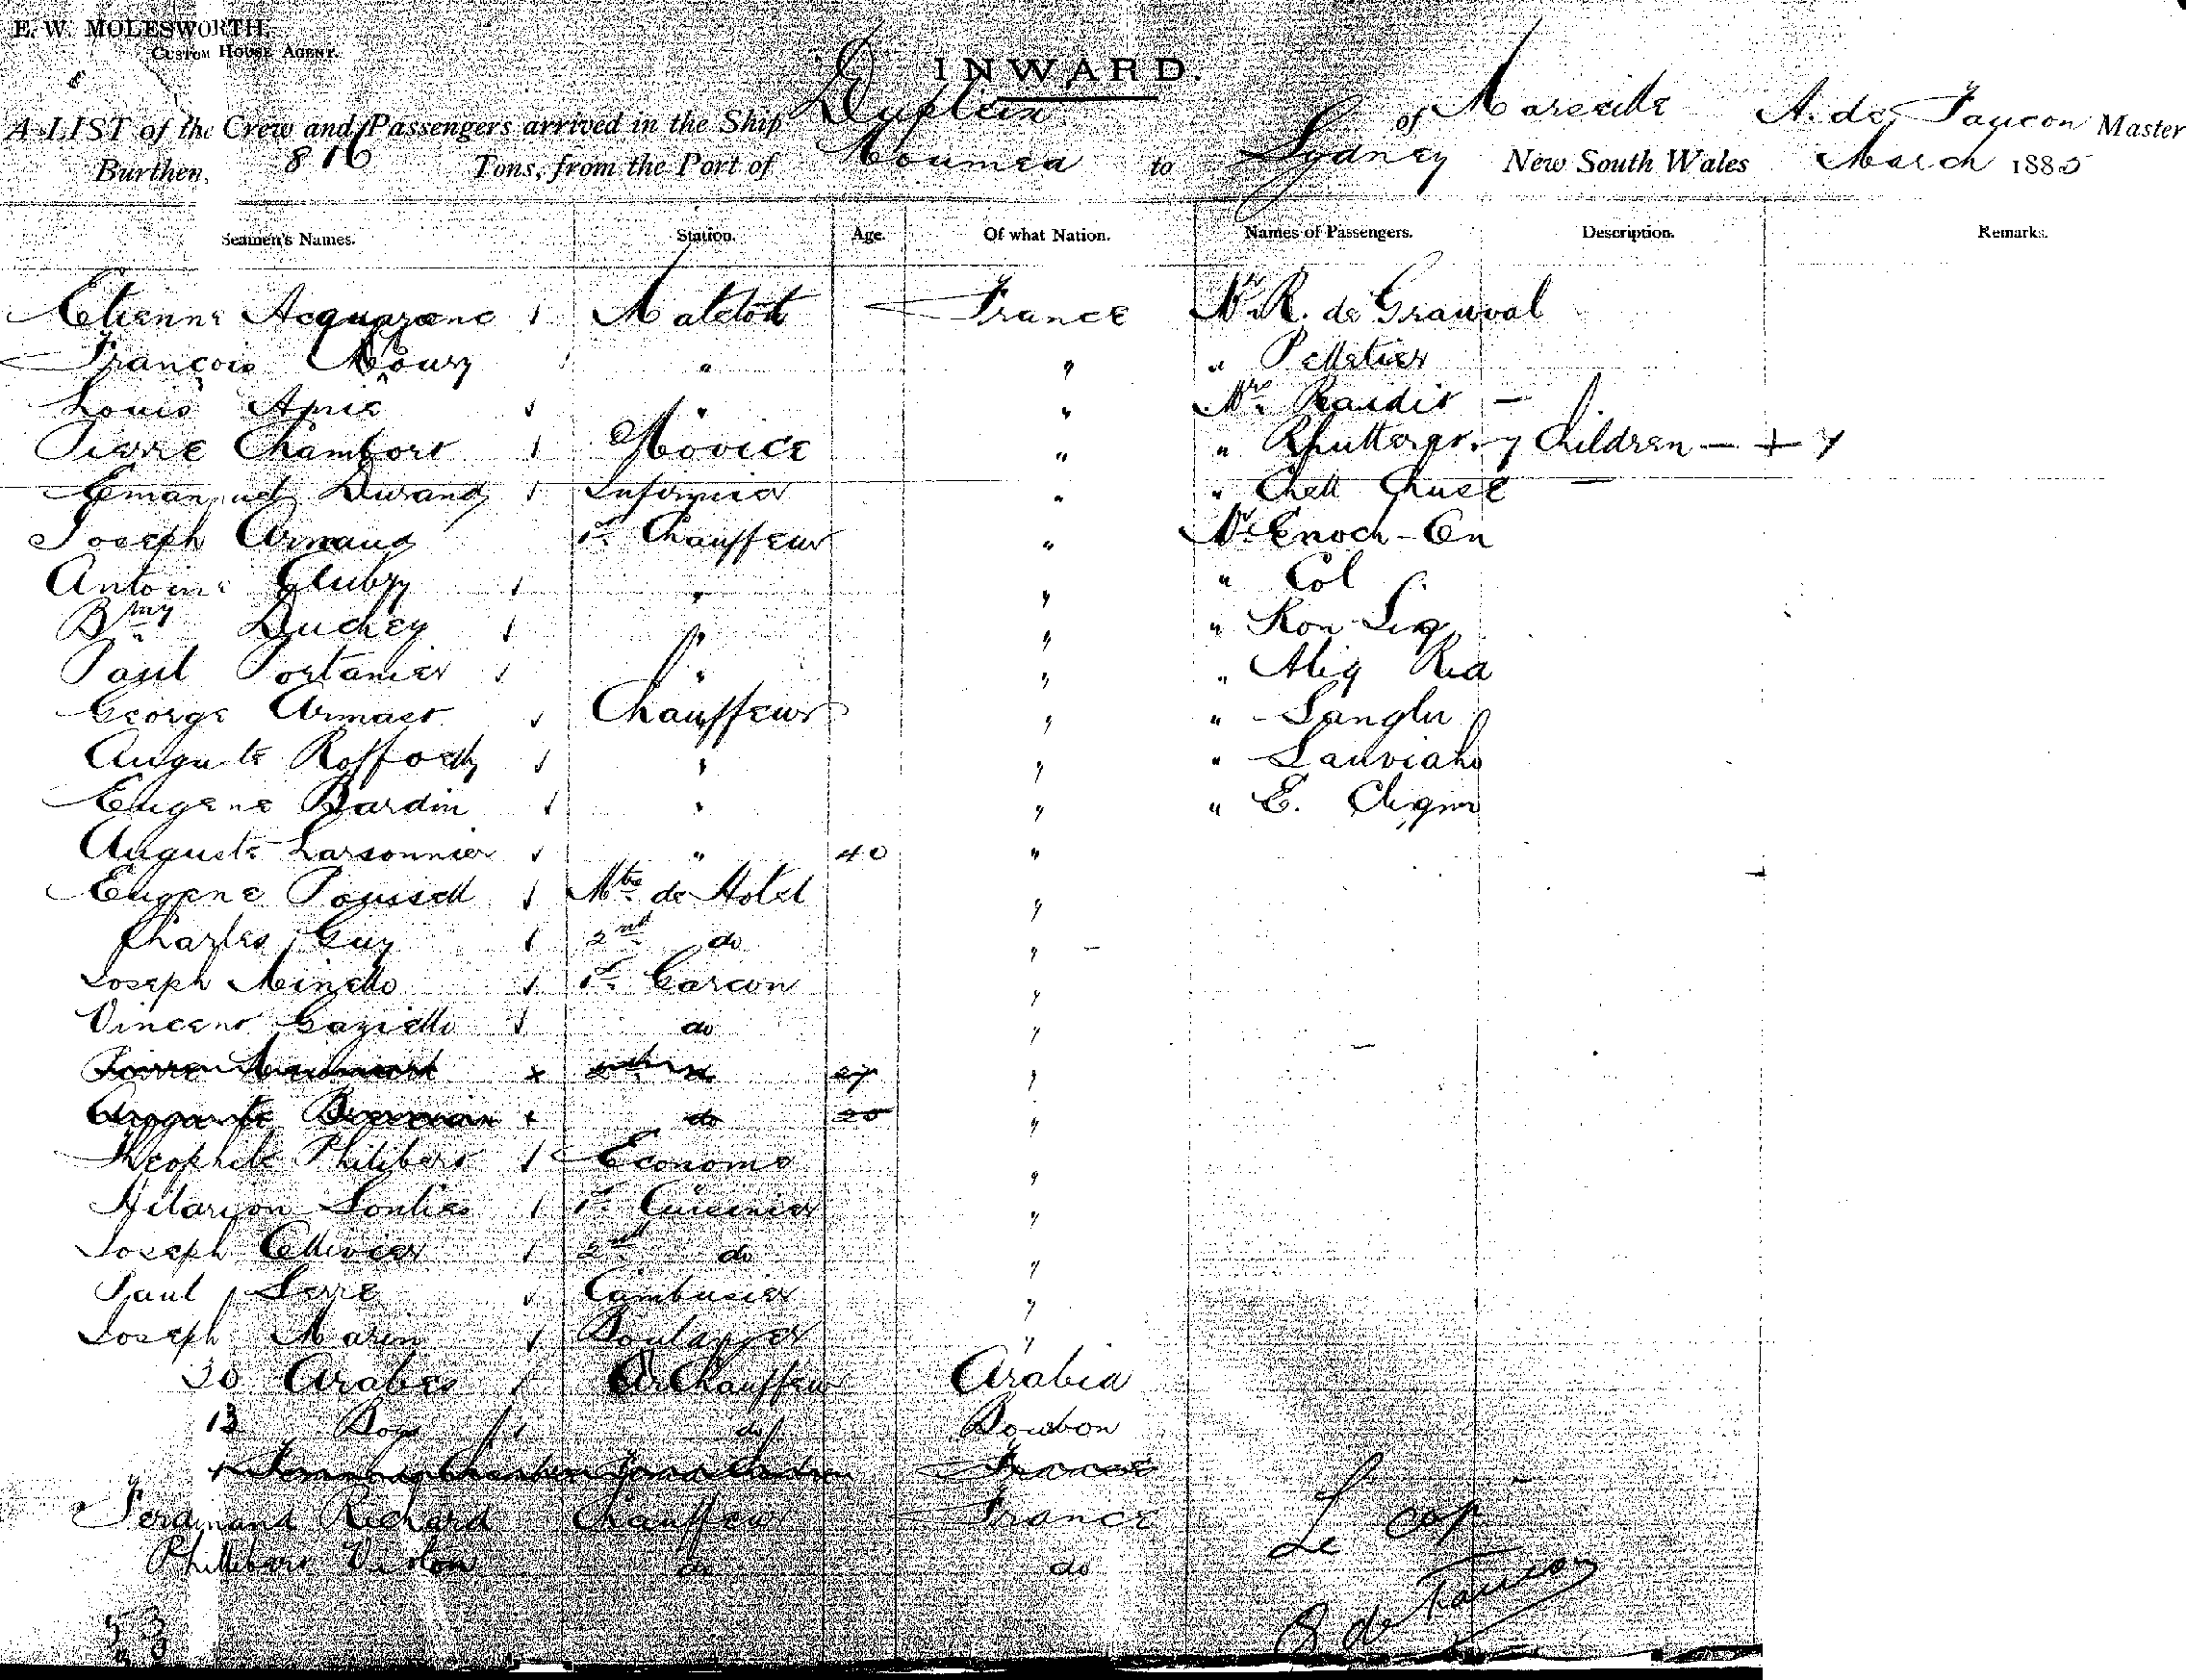 E. W. MOLESWORTH,
CUSTOM HOUSE AGENT.
INWARD.
A LIST of the Crew and Passengers arrived in the Ship Dupleix of Marseille A. de Faucon Master
Burthen, 816 Tons, from the Port of Noumea to Sydney New South Wales March 1885
Seamen's Names. Station. Age. Of what Nation. Names of Passengers. Description. Remarks.
Etienne Acquarone Matelot France Mr R. de Grauval
François Noury " " " Pelletier
Louis Amic " " Mrs Raidit —
Pierre Chambort Novice " " Rhutterer. 7 Children — + 7
Emanuel Durand Infirmier " " Chell Chuse —
Joseph Arnaud 1r Chauffeur " Mr Enoch-On
Antoine Glubzy " " " Col
Bmy Duchey " " " Kon Lig
Paul Portanier " " " Alig Ria
George Armast Chauffeur " " Langlu
Auguste " "
Eugene Bardin " " " E.
Auguste Larsonnier " 40 "
Eugene Poussell Mtre de Hotel "
Charles Guy 2nd do "
Joseph Minello 1r Garcon "
Vincent Gazielli do "
Pierre 27 "
Auguste do 20 "
Theophile Philibert Econome "
Hilaryon Sonlies 1r Cuisinier "
Joseph Ollivier 2nd do "
Paul Serre Cambusier "
Joseph Marin Boulanger "
30 Arabes Chauffeur Arabia
13 Boys do Bourbon
France
Ferdinand Richard Chauffeur France
Philibert Viston do do
Le cap
de Faucon
53